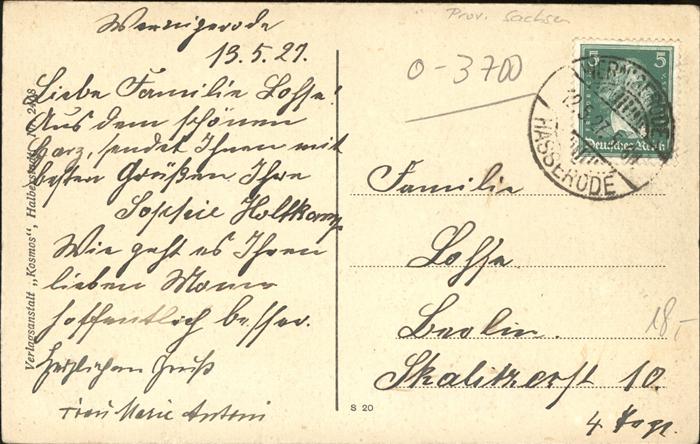 Wernigerode
13.5.27.
Liebe Familie Lohse!
Aus dem schönen
Harz, sendet Ihnen mit
besten Grüßen Ihre
Sophie Holtkamp
Wie geht es Ihrem
lieben Mann
hoffentlich besser.
Herzlichen Gruß
Frau Marie Antoni
Verlagsanstalt „Kosmos“, Halberstadt. Nr.
S 20
Prov. Sachsen
0-3700
5 5
Deutsches Reich
WERNIGERODE
12.5.27
HASSERODE
Familie
Lohse
Berlin.
Skalitzerst 10
4. Togr.
18,-